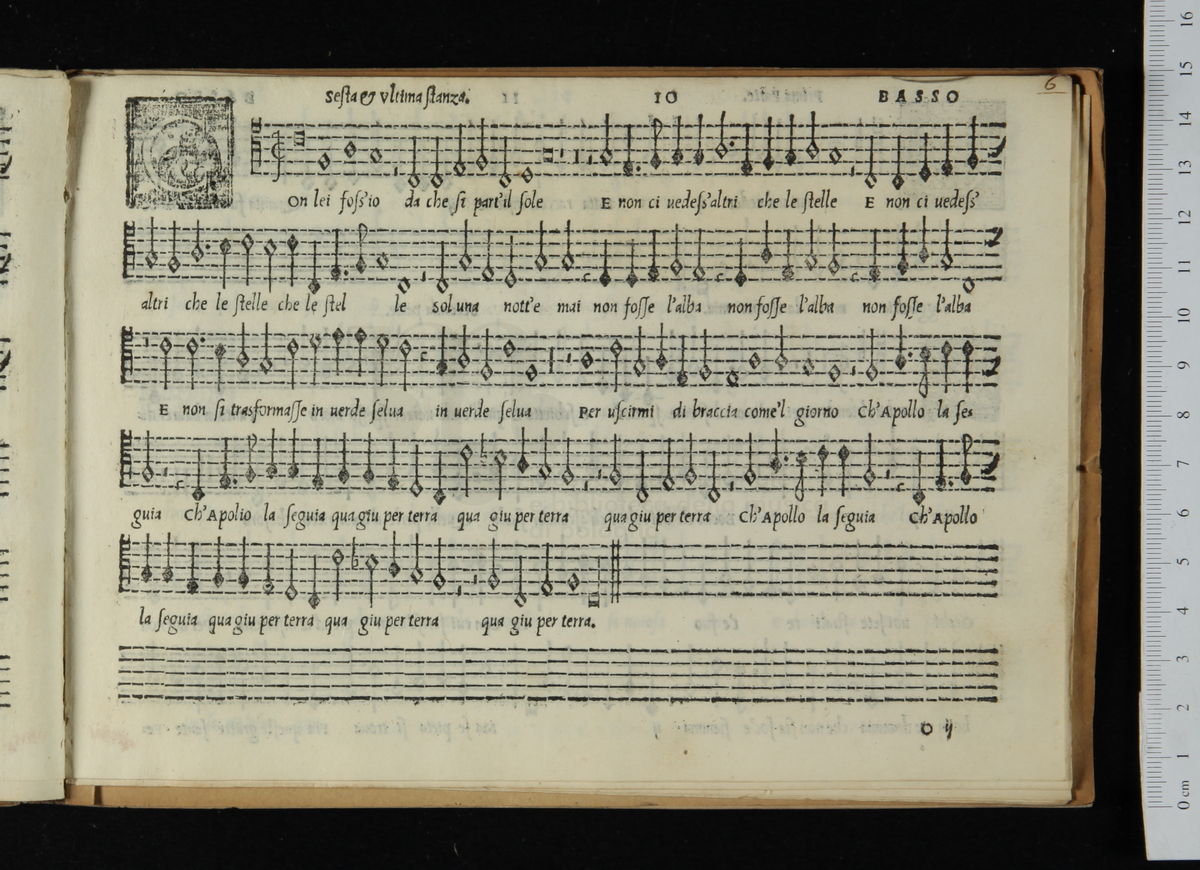 Sesta & vltima stanza. 10 BASSO 6
On lei foss'io da che si part'il sole E non ci uedess'altri che le stelle E non ci uedess'
altri che le stelle che le stel le Sol una nott'e mai non fosse l'alba non fosse l'alba non fosse l'alba
E non si trasformasse in uerde selua in uerde selua Per uscirmi di braccia come'l giorno Ch'Apollo la se=
guia Ch'Apollo la seguia qua giu per terra qua giu per terra qua giu per terra Ch'Apollo la seguia Ch'Apollo
la seguia qua giu per terra qua giu per terra qua giu per terra.
O ij
16
15
14
13
12
11
10
9
8
7
6
5
4
3
2
1
0 cm